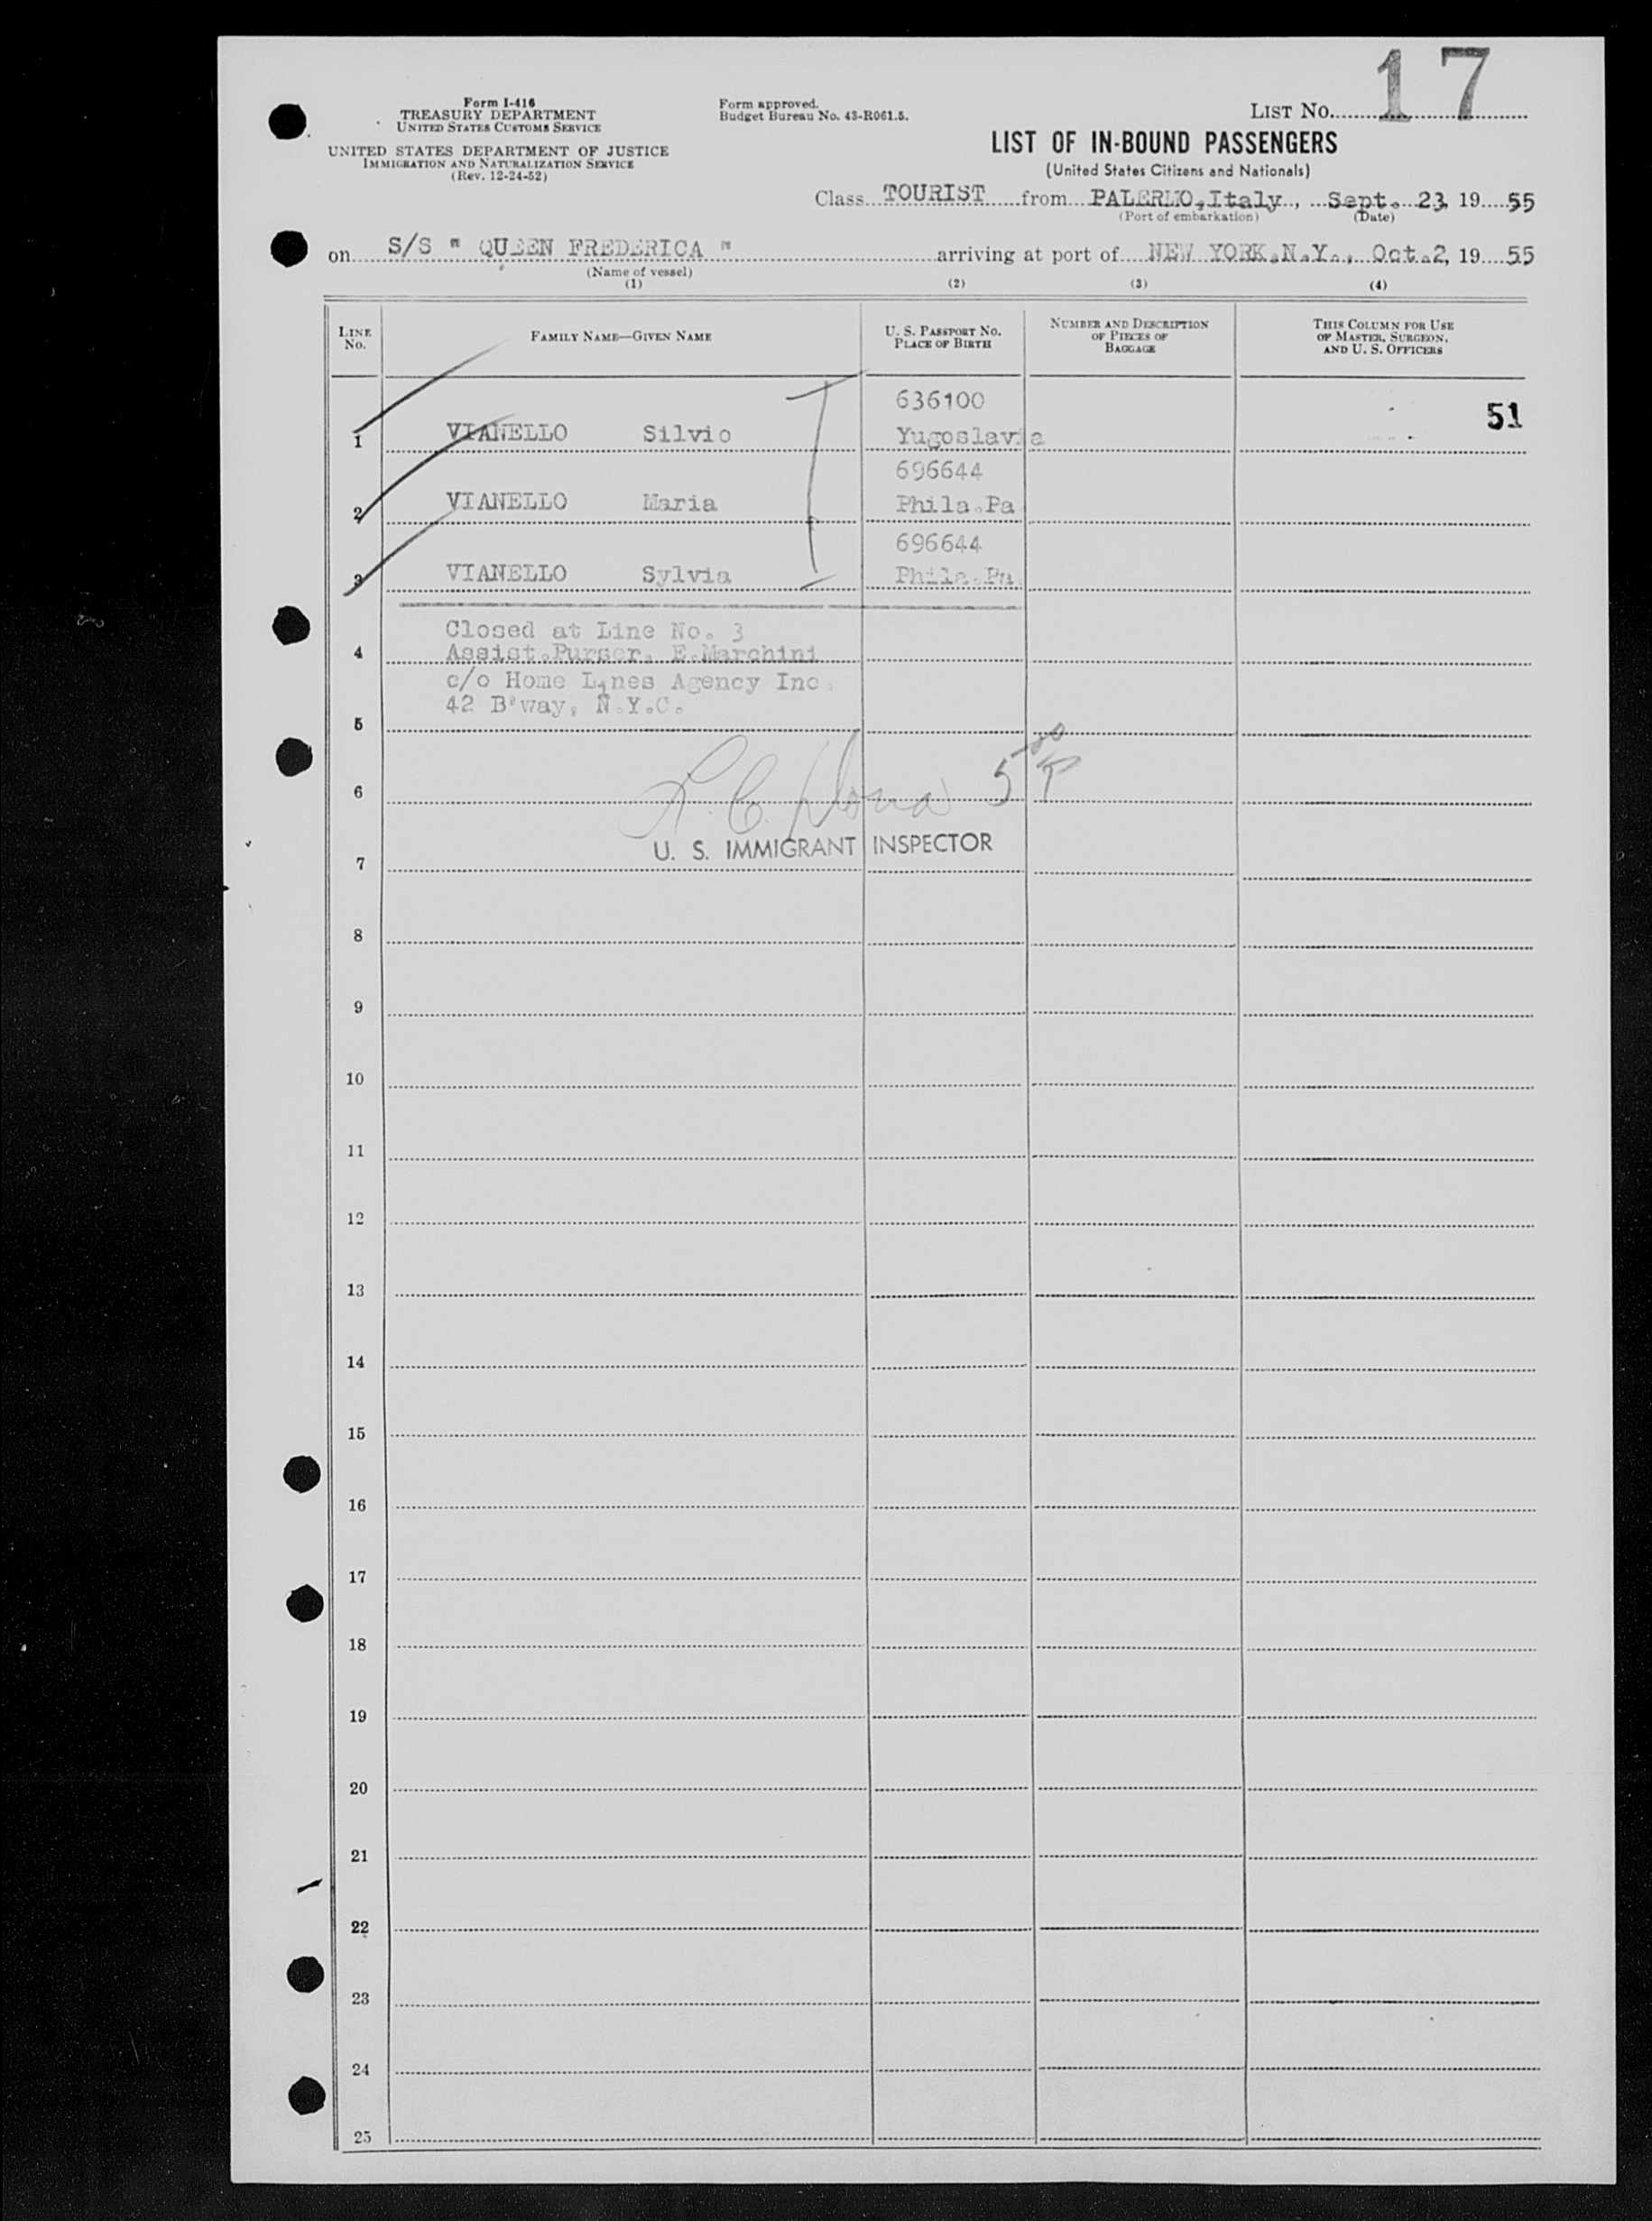 17
Form I-416
TREASURY DEPARTMENT
UNITED STATES CUSTOMS SERVICE
UNITED STATES DEPARTMENT OF JUSTICE
IMMIGRATION AND NATURALIZATION SERVICE
(Rev. 12-24-52)
Form approved.
Budget Bureau No. 43-R061.5.
LIST No.
LIST OF IN-BOUND PASSENGERS
(United States Citizens and Nationals)
Class TOURIST from PALERMO, Italy, Sept. 23, 19 55
(Port of embarkation) (Date)
on S/S " QUEEN FREDERICA " arriving at port of NEW YORK, N.Y., Oct. 2, 19 55
(Name of vessel)
(1) (2) (3) (4)
LINE No. FAMILY NAME—GIVEN NAME U. S. PASSPORT No. PLACE OF BIRTH NUMBER AND DESCRIPTION OF PIECES OF BAGGAGE THIS COLUMN FOR USE OF MASTER, SURGEON, AND U. S. OFFICERS
636100
51
1 VIANELLO Silvio Yugoslavia
696644
2 VIANELLO Maria Phila.Pa
696644
3 VIANELLO Sylvia Phila.Pa.
Closed at Line No. 3
4 Assist.Purser. E.Marchini
c/o Home Lines Agency Inc.
42 B'way, N.Y.C.
5
6
U. S. IMMIGRANT INSPECTOR
7
8
9
10
11
12
13
14
15
16
17
18
19
20
21
22
23
24
25